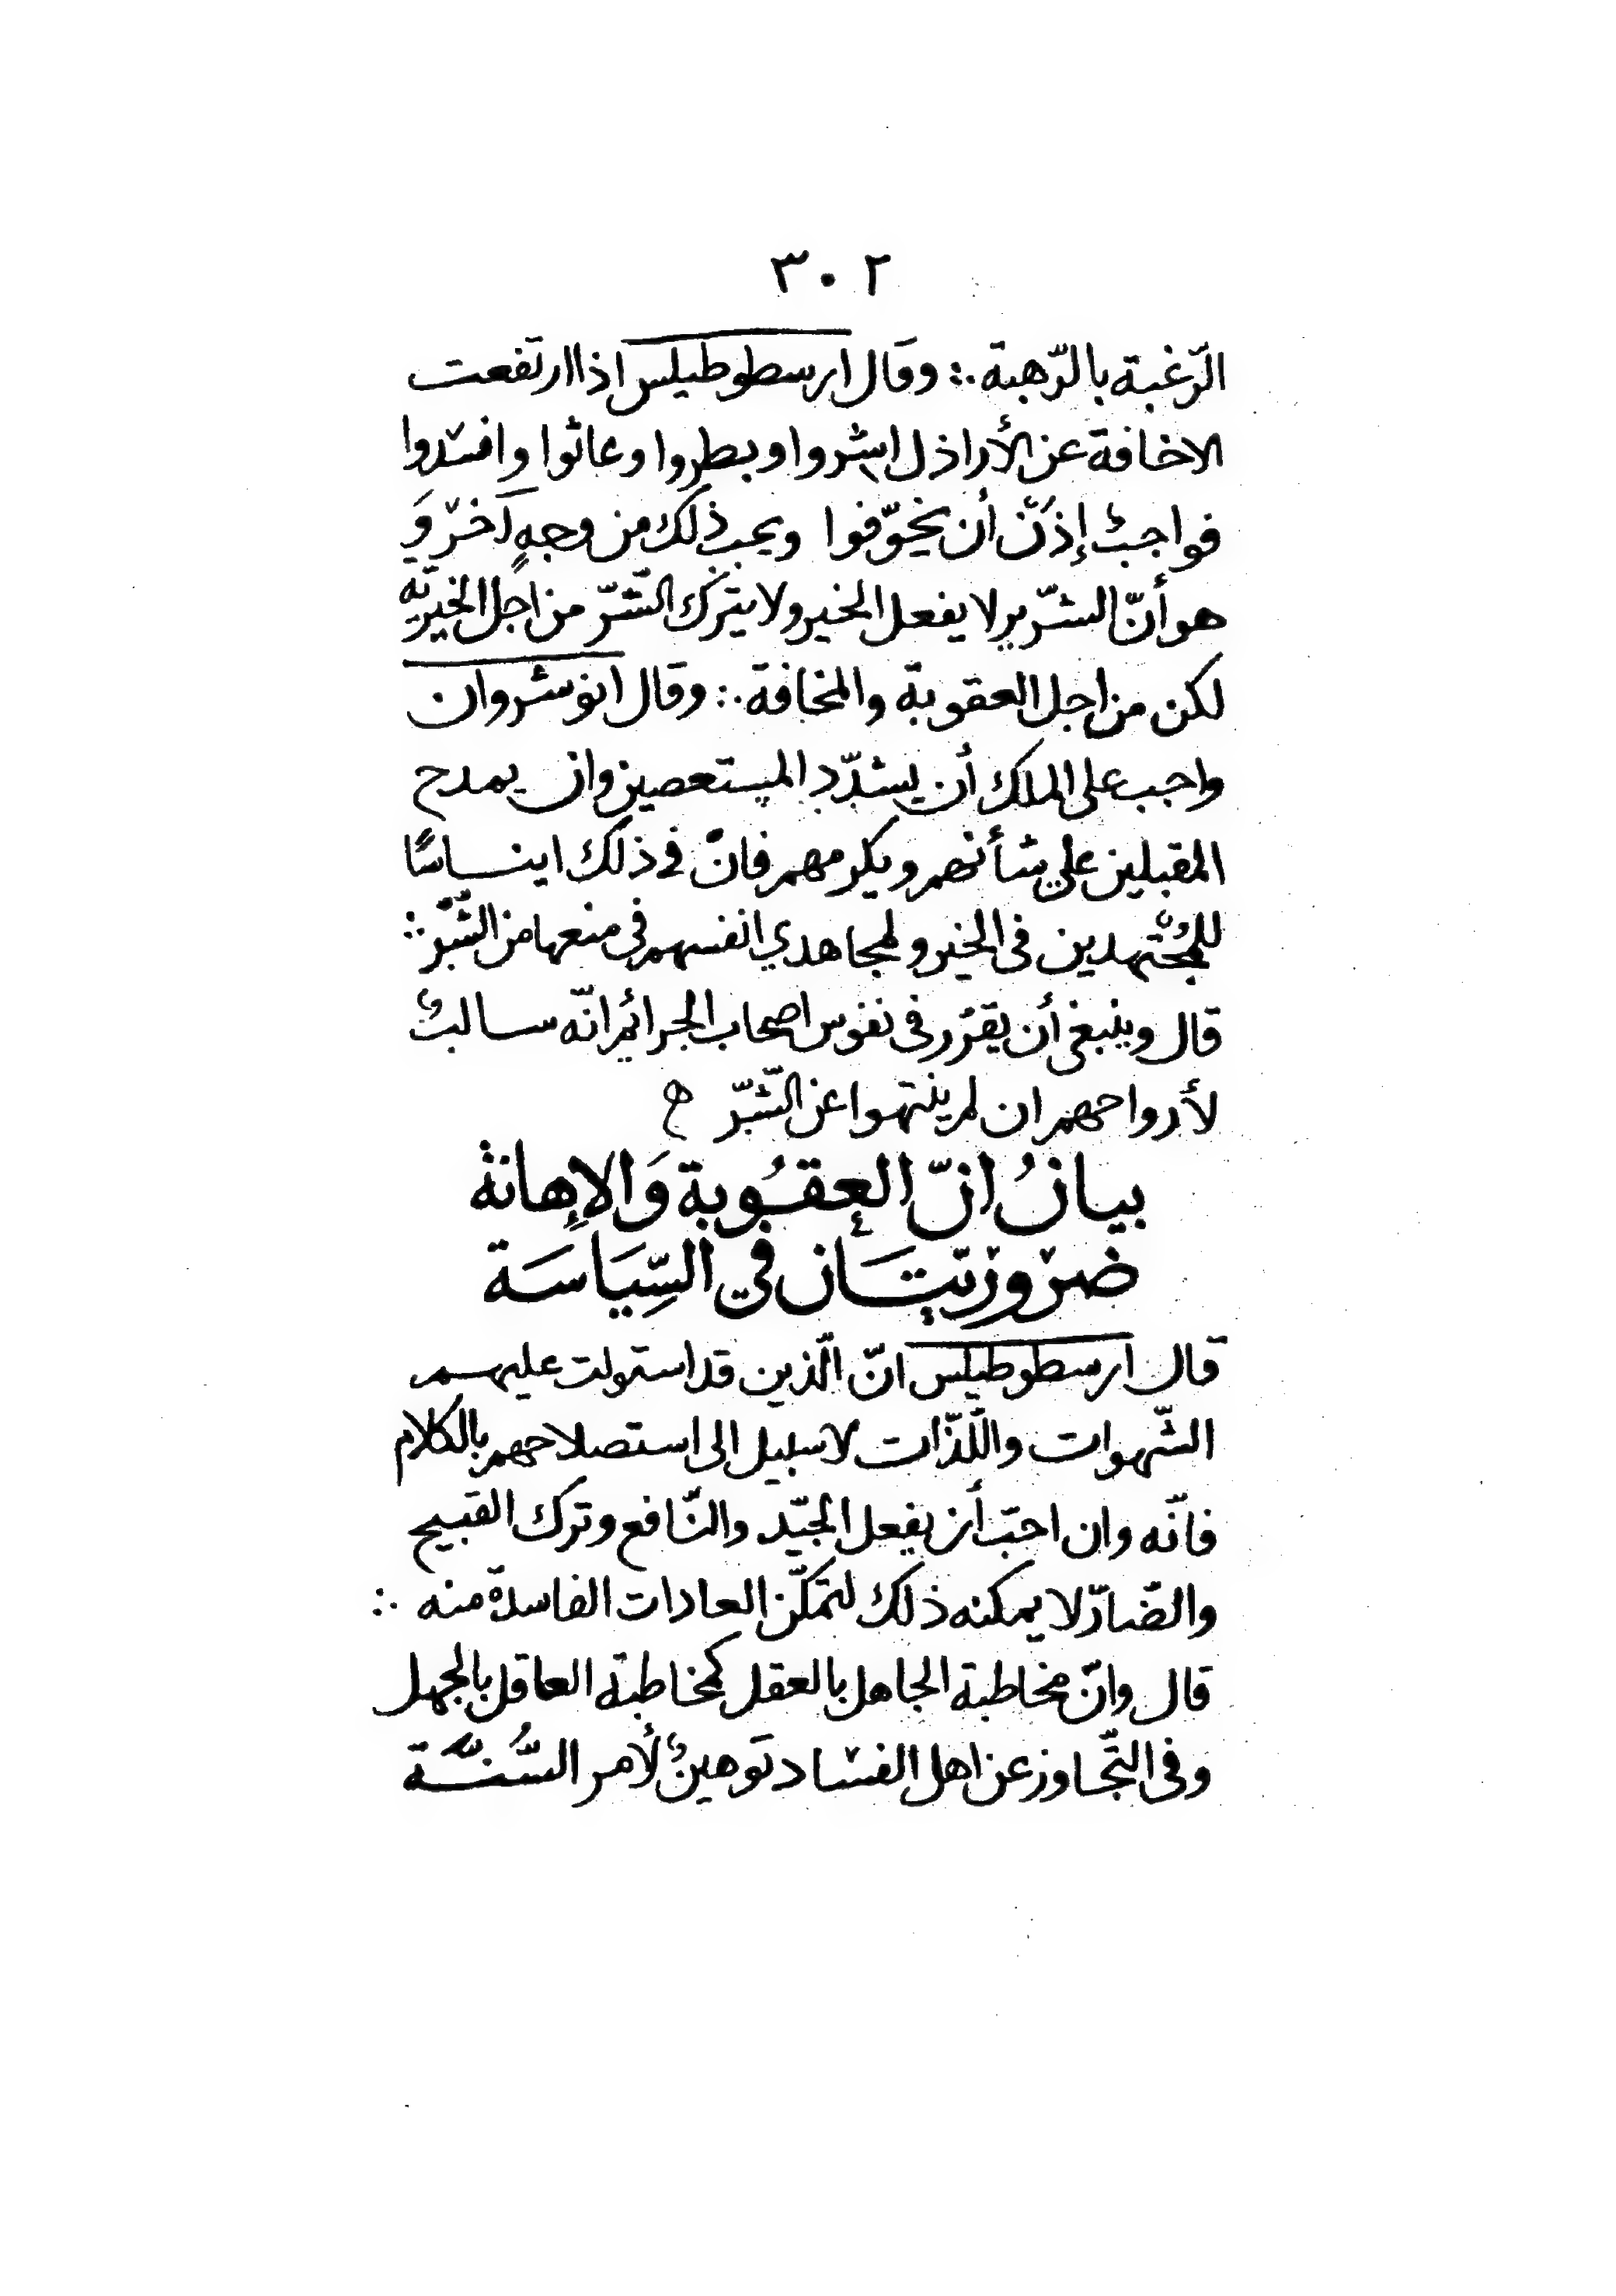 ٣٠٢
الرّغبة بالرّهبة ∴ وقال ارسطوطيلس اذا ارتفعت
الاخافة عن الأراذل اشروا وبطروا وعاثوا وافسدوا
فواجبٌ إذن أن يخوّفوا ويجب ذلك من وجهٍ آخر وَ
هو أنّ الشرّير لا يفعل الخير ولا يترك الشّرّ من اجل الخيريّه
لكن من اجل العقوبة والمخافة ∴ وقال انوشروان
واجب على الملك أن يشدّد المستعصين وان يمدح
المقبلين على شأنهم ويكرمهم فانّ في ذلك ايناسًا
للمجتهدين فى الخير ولمجاهدي انفسهم فى منعها من الشّرّ ∴
قال وينبغى أن يقرّر فى نفوس اصحاب الجرائم انّه سالبٌ
لأرواحهم ان لم ينتهوا عن الشّرّ ه
بيانُ انّ العقُوبة وَالاِهانة
ضروريّتَان في السِّيَاسَة
قال ارسطوطيلس انّ الّذين قد استولت عليهم
الشّهوات واللّذّات لا سبيل الى استصلاحهم بالكلام
فانّه وان احبّ أن يفعل الجيّد والنّافع وترك القبيح
والضّارّ لا يمكنه ذلك لتمكّن العادات الفاسدة منه ∴
قال وانّ مخاطبة الجاهل بالعقل كمخاطبة العاقل بالجهل
وفى التّجاوز عن اهل الفساد توهينٌ لأمر السُّنّة